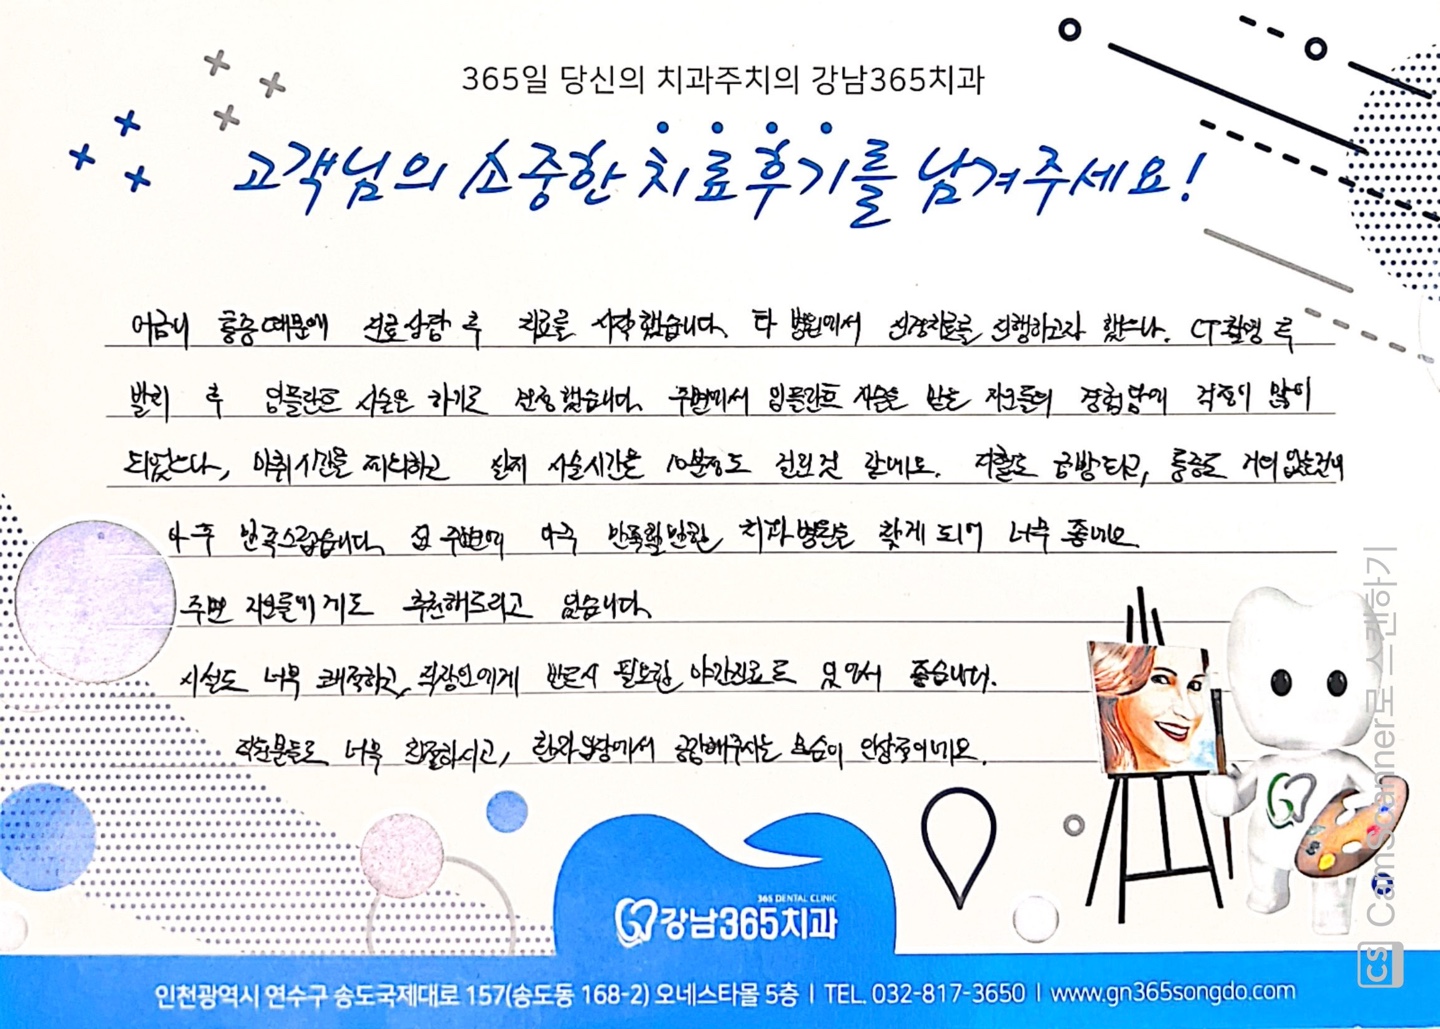 365일 당신의 치과주치의 강남365치과
고객님의 소중한 치료후기를 남겨주세요!
어금니 통증때문에 진료상담 후 치료를 시작했습니다. 타 병원에서 신경치료를 진행하고자 했으나. CT촬영 후
발치 후 임플란트 시술은 하기로 결정했습니다. 주변에서 임플란트 시술을 받은 지인들의 경험담에 걱정이 많이
되었으나, 마취시간을 제외하고 실제 시술시간은 10분정도 걸린것 같네요. 지혈도 금방되고, 통증도 거의 없는건이
아주 만족스럽습니다. 집 주변에 아주 만족할만한 치과병원을 찾게 되어 너무 좋네요
주변 지인들에게도 추천해드리고 있습니다.
시설도 너무 쾌적하고, 직장인에게 반드시 필요한 야간진료도 있어서 좋습니다.
직원분들도 너무 친절하시고, 환자입장에서 공감해주시는 모습이 인상적이네요.
365 DENTAL CLINIC
강남365치과
인천광역시 연수구 송도국제대로 157(송도동 168-2) 오네스타몰 5층 | TEL. 032-817-3650 | www.gn365songdo.com
CS CamScanner로 스캔하기